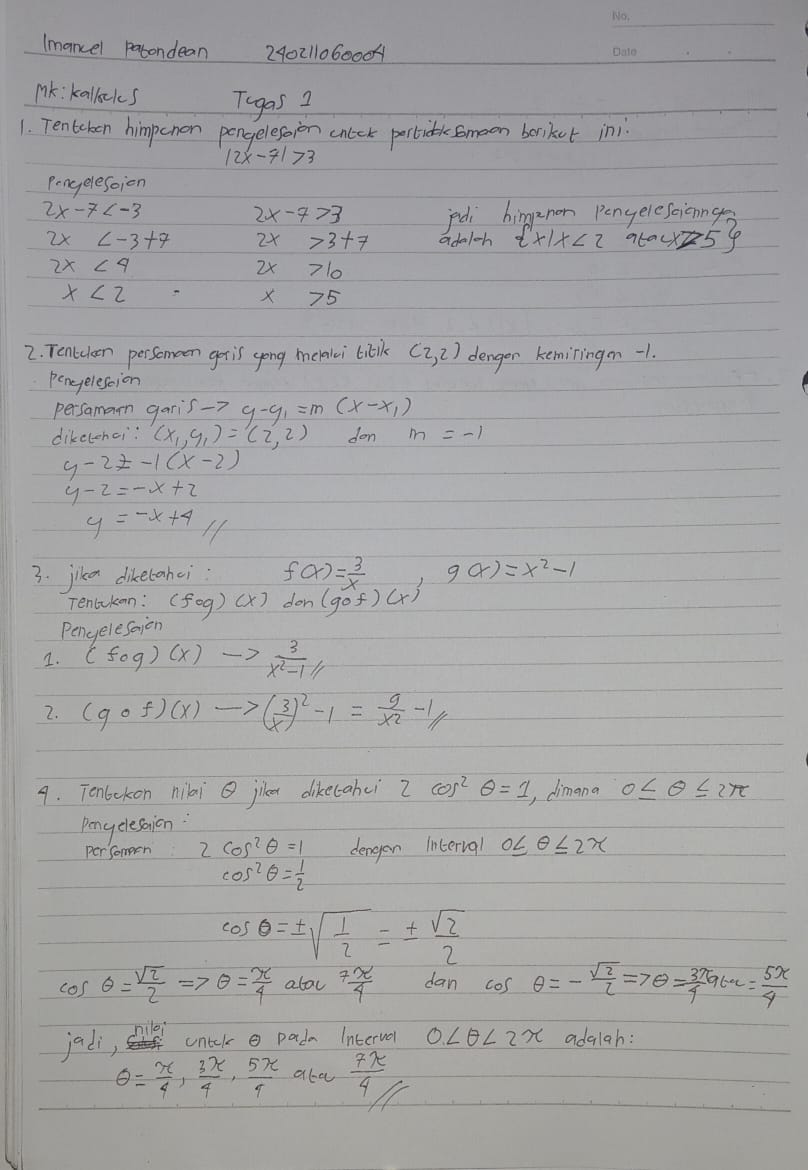 No.
Date
Imanuel Patondean 240211060004
Mk: kalkulus Tugas 1
1. Tentukan himpunan pengelesaian untuk pertidaksamaan berikut ini:
|2x-7| >3
Pengelesaian
2x-7<-3 2x-7>3 jadi himpunan Pengelesaiannya
2x <-3+7 2x >3+7 adalah {x|x<2 atau x>5}
2x <4 2x >10
x <2 x >5
2. Tentukan persamaan garis yang melalui titik (2,2) dengan kemiringan -1.
Pengelesaian
persamaan garis -> y-y₁ =m (x-x₁)
diketahui: (x₁,y₁)=(2,2) dan m = -1
y-2=-1(x-2)
y-2=-x+2
y =-x+4 //
3. jika diketahui : f(x)=3/x , g(x)=x²-1
Tentukan: (fog)(x) dan (gof)(x)
Pengelesaian
1. (fog)(x) -> 3/(x²-1) //
2. (gof)(x) -> (3/x)² -1 = 9/x² -1 //
4. Tentukan nilai θ jika diketahui 2 cos² θ=1, dimana 0≤ θ ≤ 2π
Pengelesaian :
Persamaan : 2 cos²θ =1 dengan Interval 0≤ θ ≤2π
cos²θ=1/2
cos θ=±√(1/2) = ± √2/2
cos θ=√2/2 => θ=π/4 atau 7π/4 dan cos θ=-√2/2 => θ=3π/4 atau = 5π/4
jadi, nilai untuk θ pada Interval 0<θ<2π adalah:
θ=π/4, 3π/4, 5π/4 atau 7π/4 //